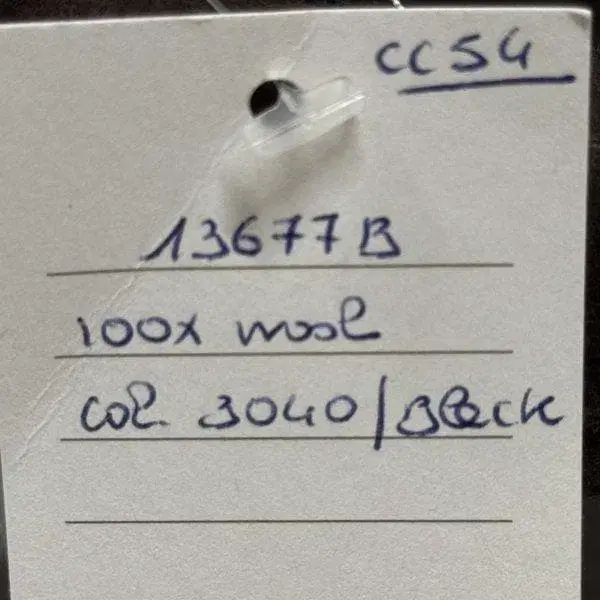 CC54
13677B
100% wool
col. 3040/Black